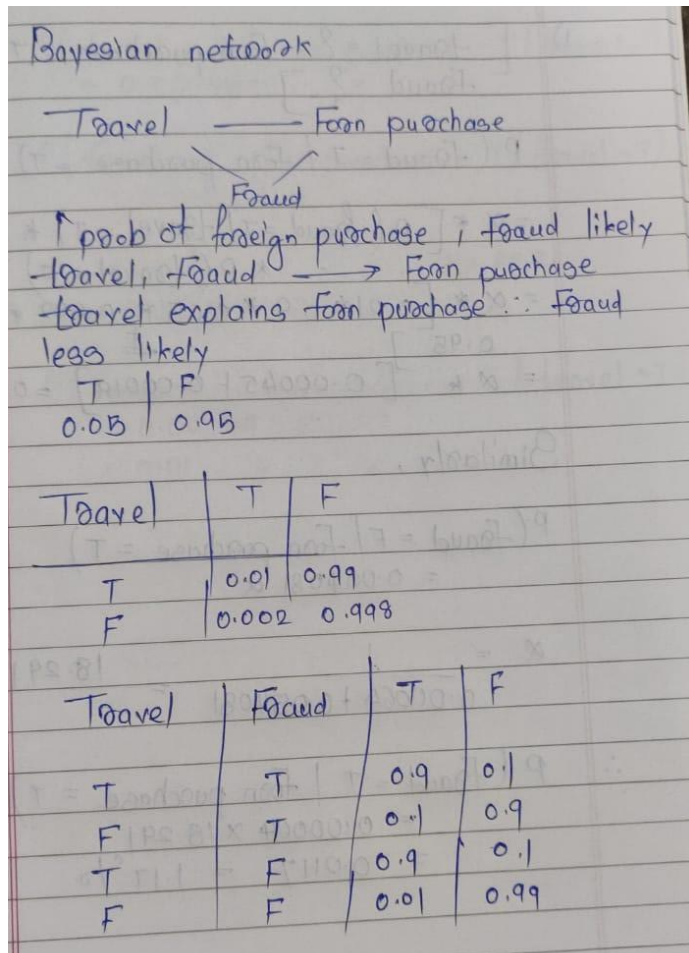 Bayesian network
Travel Forn purchase
Fraud
↑ prob of foreign purchase ; fraud likely
travel, fraud → Forn purchase
travel explains forn purchase ∴ fraud
less likely
T F
0.05 0.95
Travel T F
T 0.01 0.99
F 0.002 0.998
Travel Fraud T F
T T 0.9 0.1
F T 0.1 0.9
T F 0.9 0.1
F F 0.01 0.99